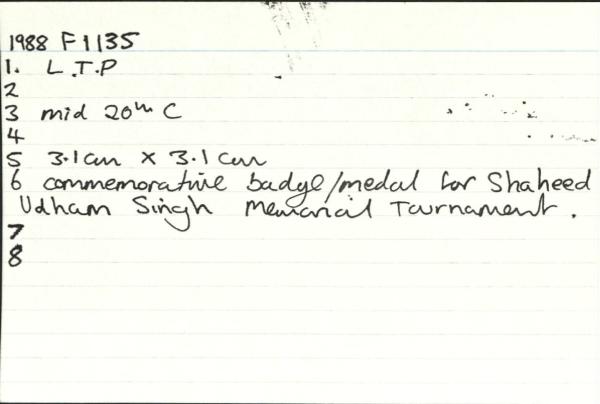 1988 F1135
1. L.T.P
2
3 mid 20th C
4
5 3.1cm x 3.1cm
6 commemorative badge/medal for Shaheed
Udham Singh Memorial Tournament.
7
8